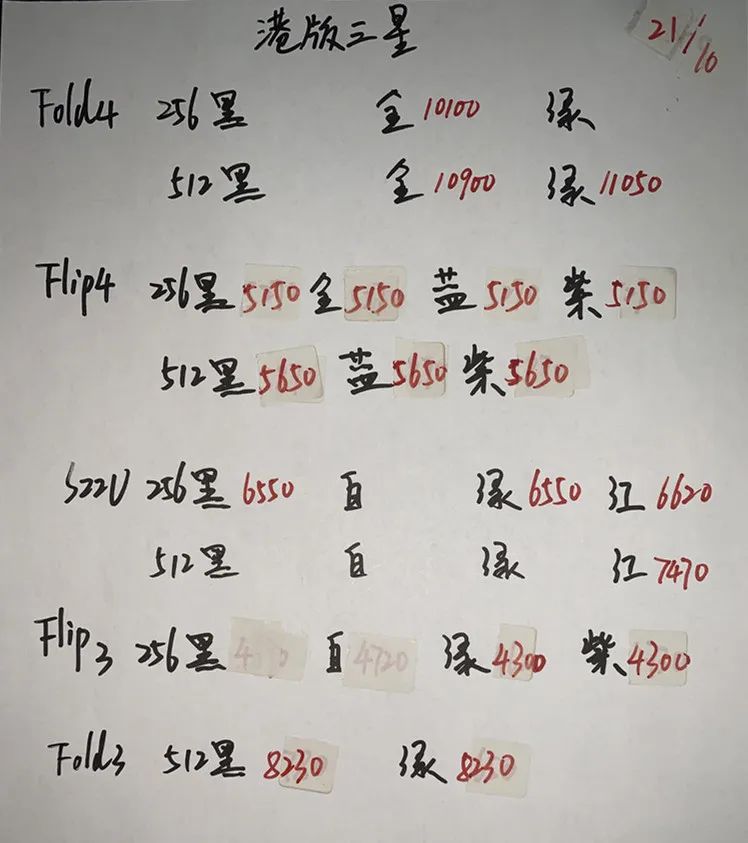 港版三星 21/10
Fold4 256黑 金10100 绿
512黑 金10900 绿11050
Flip4 256黑5150 金5150 蓝5150 紫5150
512黑5650 蓝5650 紫5650
S22U 256黑6550 白 绿6550 红6620
512黑 白 绿 红7470
Flip3 256黑 白4720 绿4300 紫4300
Fold3 512黑8230 绿8230